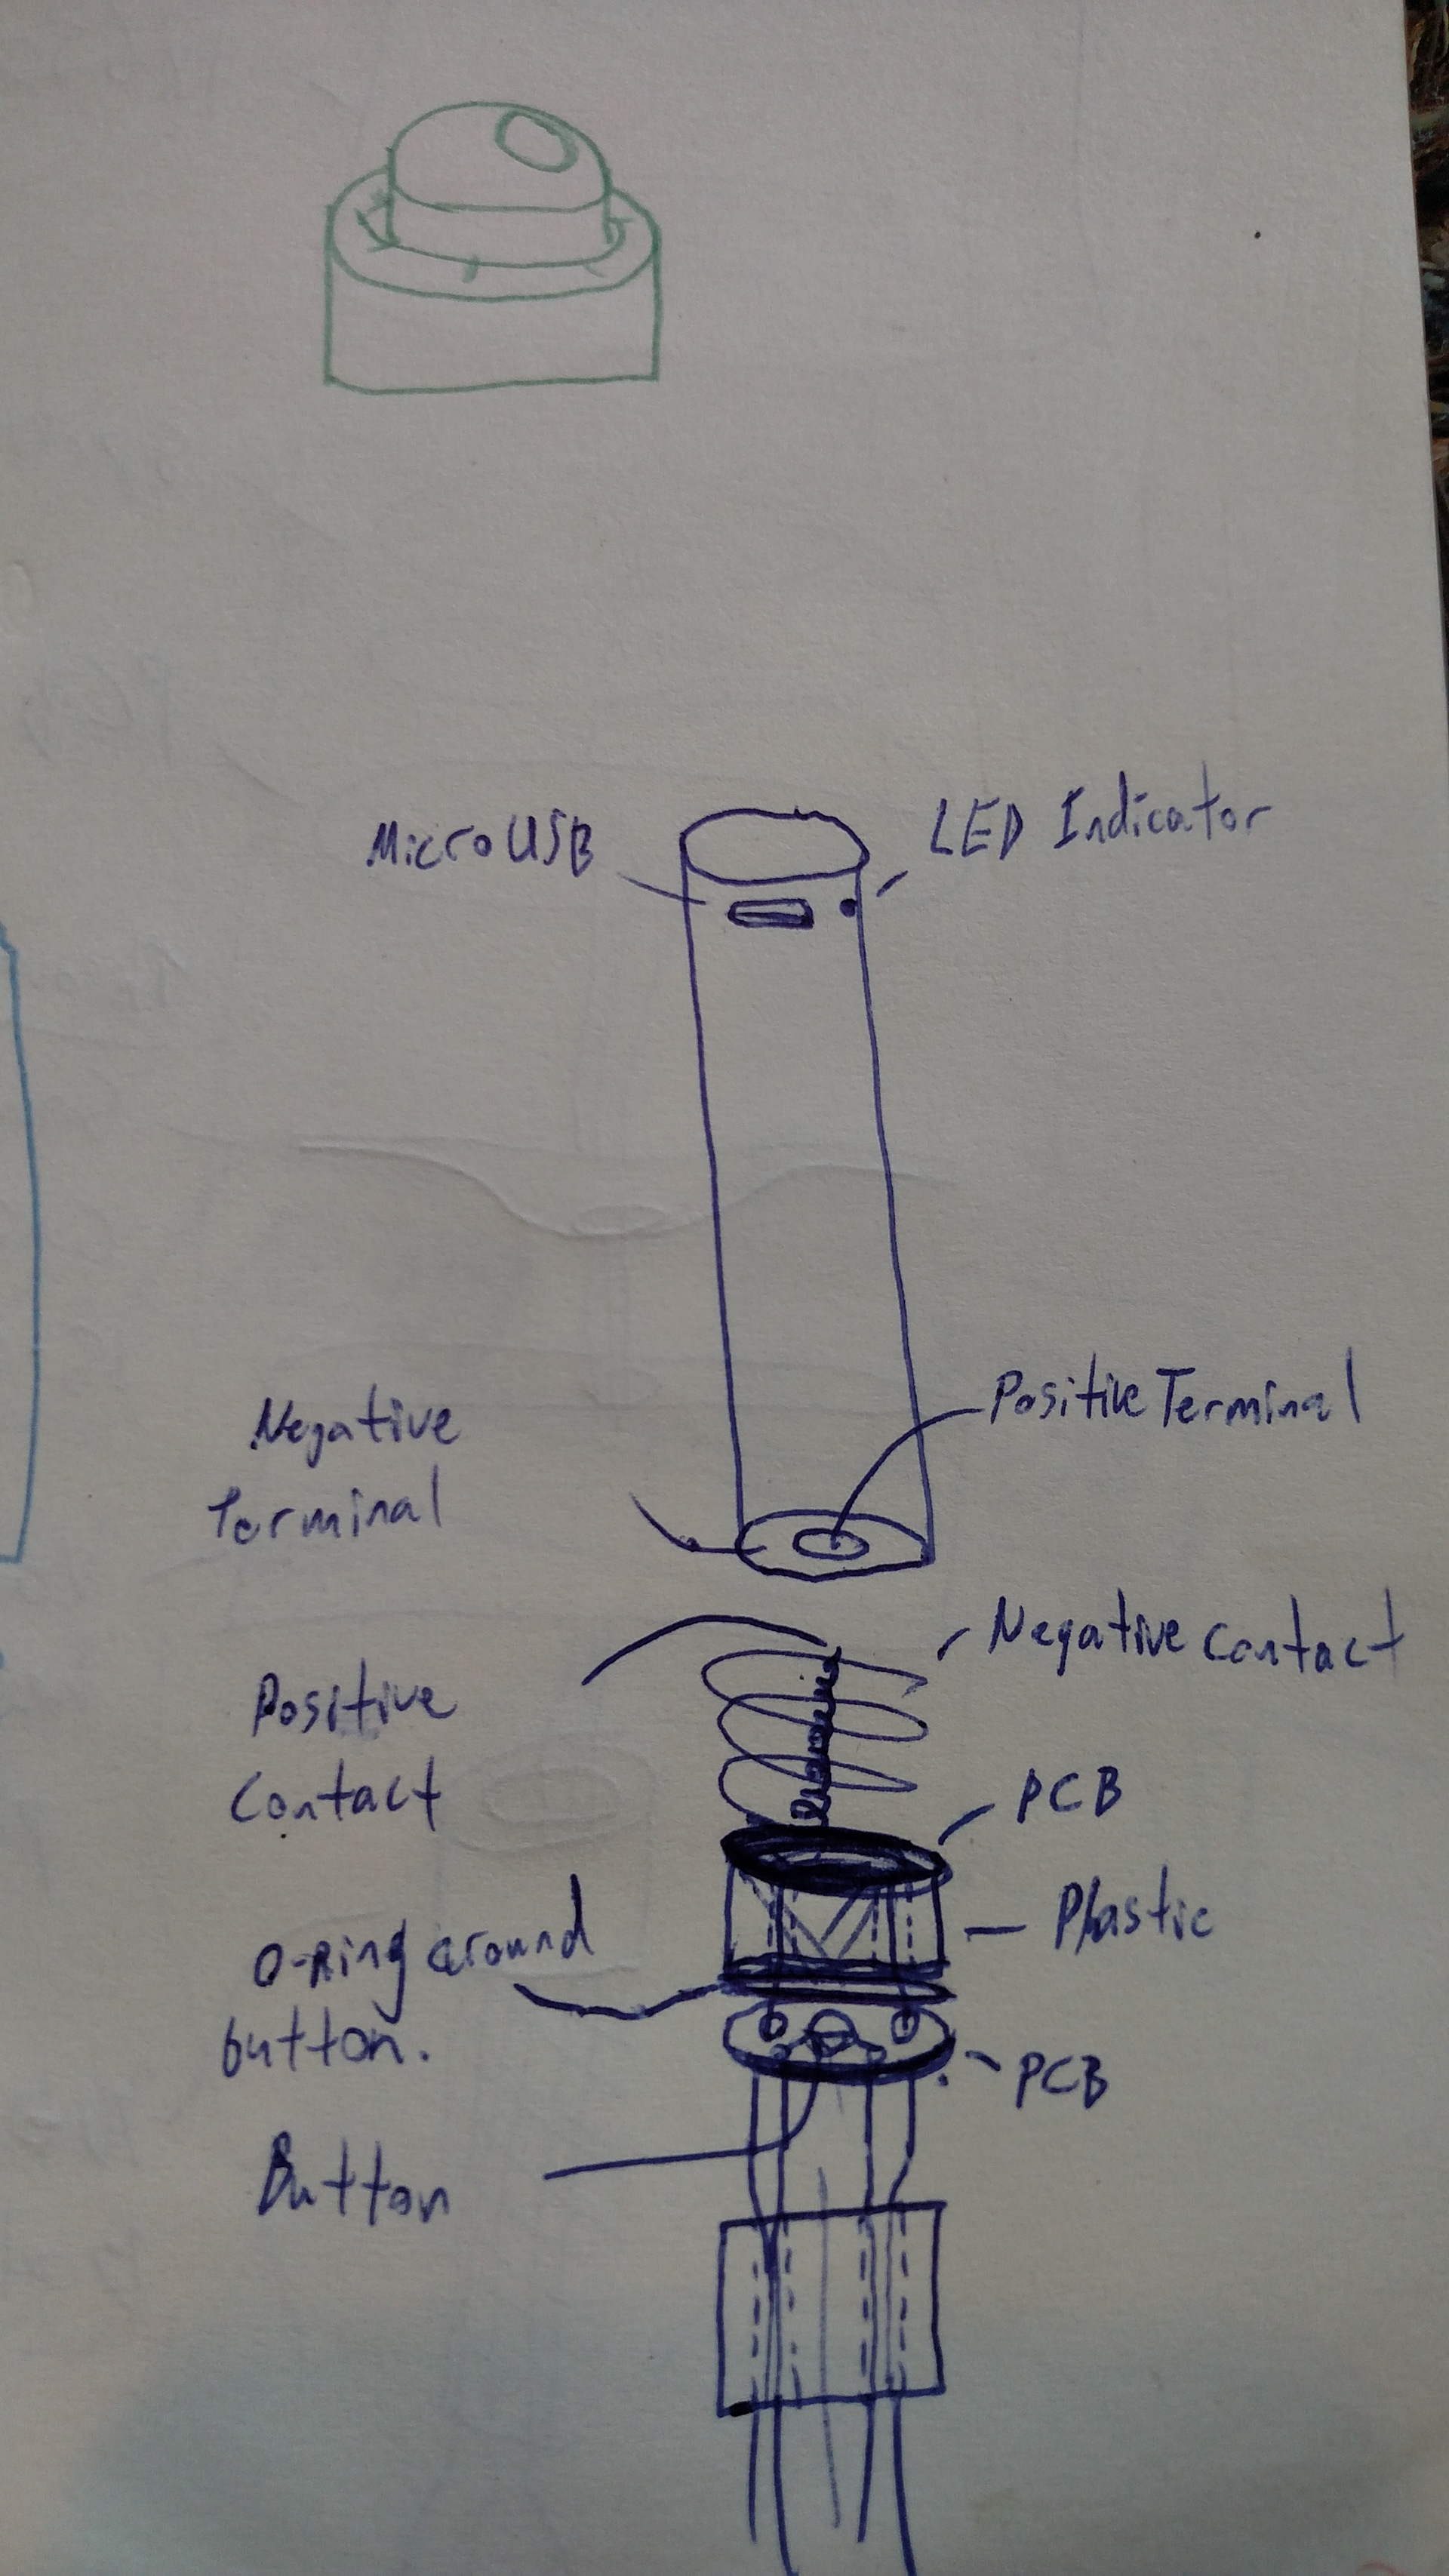 Micro USB
LED Indicator
Positive Terminal
Negative
Terminal
Negative Contact
Positive
Contact
PCB
Plastic
O-Ring around
button.
PCB
Button